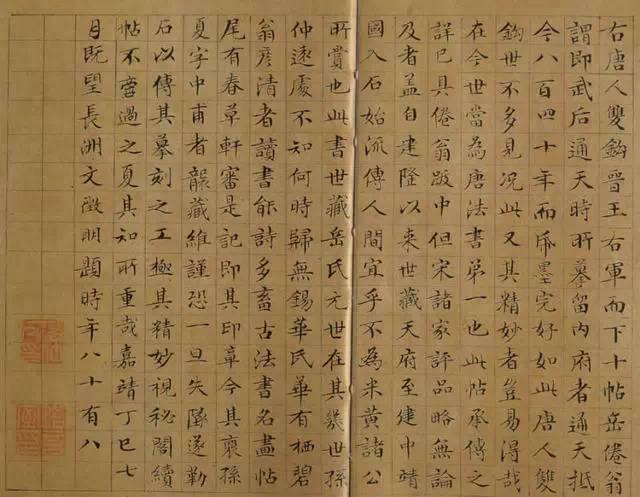 右唐人雙鉤晉王右軍而下十帖岳倦翁
謂即武后通天時所摹留內府者通天抵
今八百四十年而紙墨完好如此唐人雙
鉤世不多見況此又其精妙者豈易得哉
在今世當為唐法書第一也此帖承傳之
詳已具倦翁跋中但宋諸家評品略無論
及者蓋自建隆以来世藏天府至建中靖
國入石始流傳人間宜乎不為米黃諸公
所賞也此書世藏岳氏元世在其幾世孫
仲遠處不知何時歸無錫華氏華有栖碧
翁彥清者讀書能詩多畜古法書名畫帖
尾有春草軒審是記即其印章今其裔孫
夏字中甫者襲藏維謹恐一旦失墜遂勒
石以傳其摹刻之工極其精妙視秘閣續
帖不啻過之夏其知所重哉嘉靖丁巳七
月既望長洲文徵明題時年八十有八